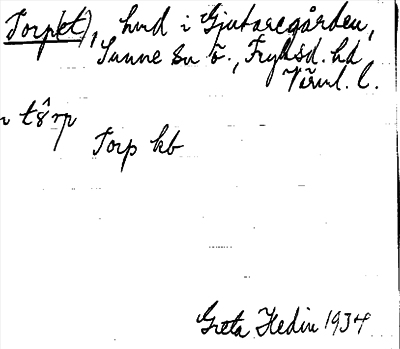 Torp(et), hmd i Gjutaregården,
Sunne sn ö., Fryksd. hd
Värml. l.
Torp kb
Greta Hedin 1934